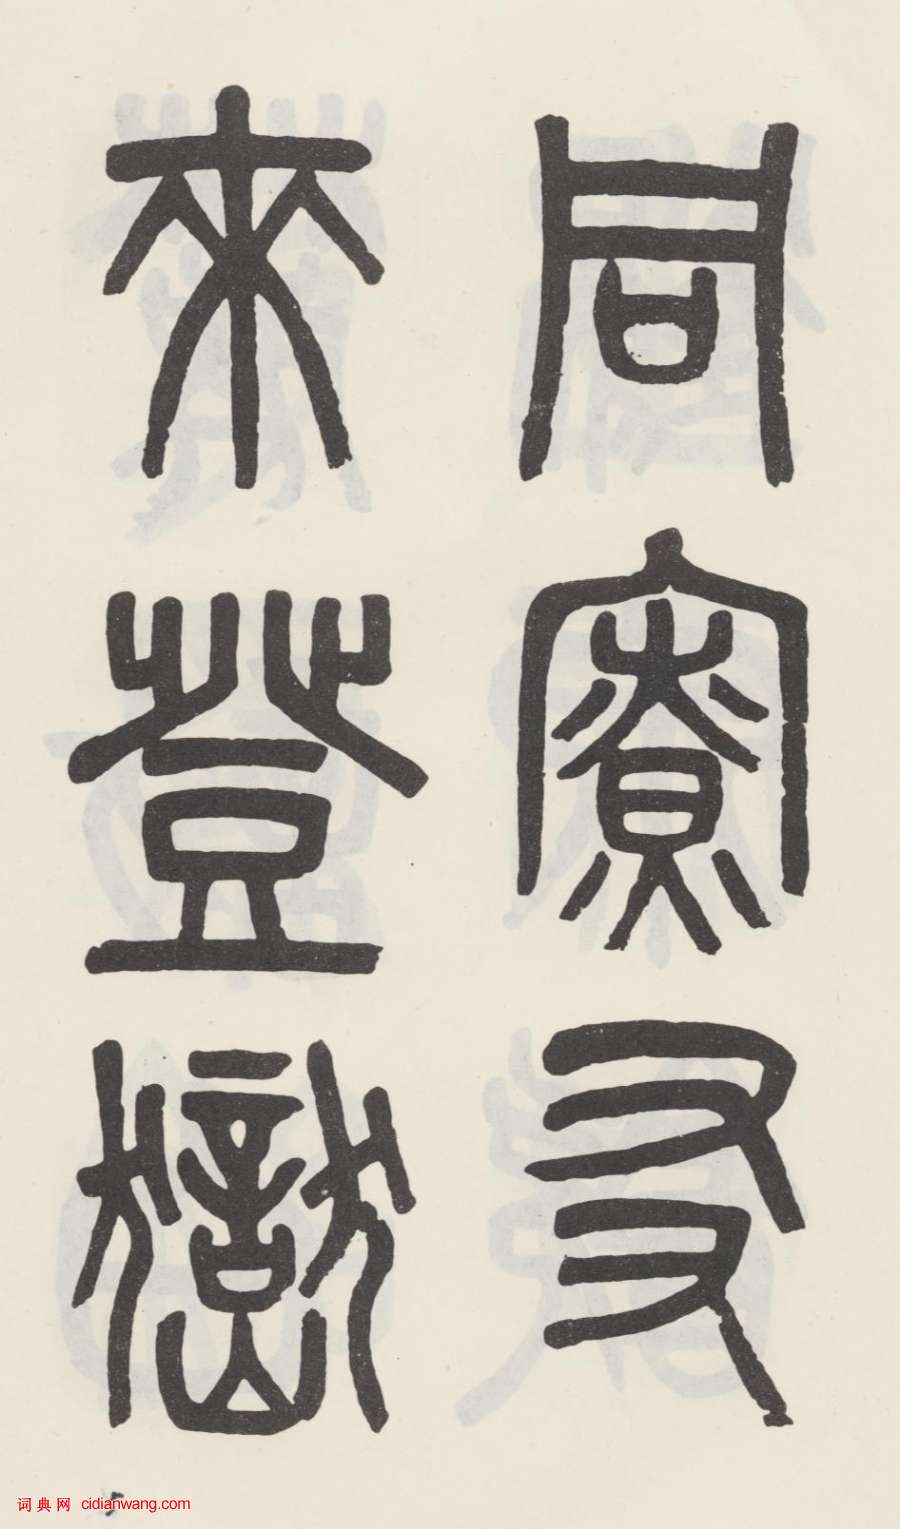 同寮友
來登嶽
词典网 cidianwang.com
5